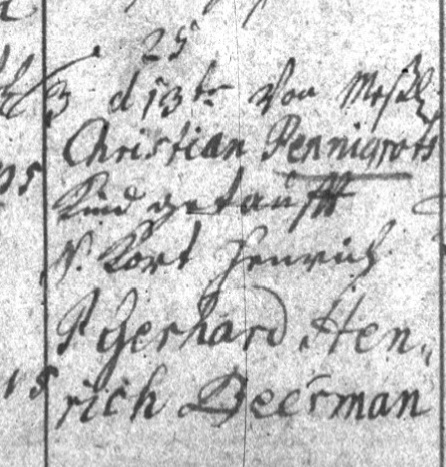 25
3 d 13ten Von
Christian Pennigrots
Kind getaufft
N. Kort Henrich
P Gerhard Hen,
rich Deerman